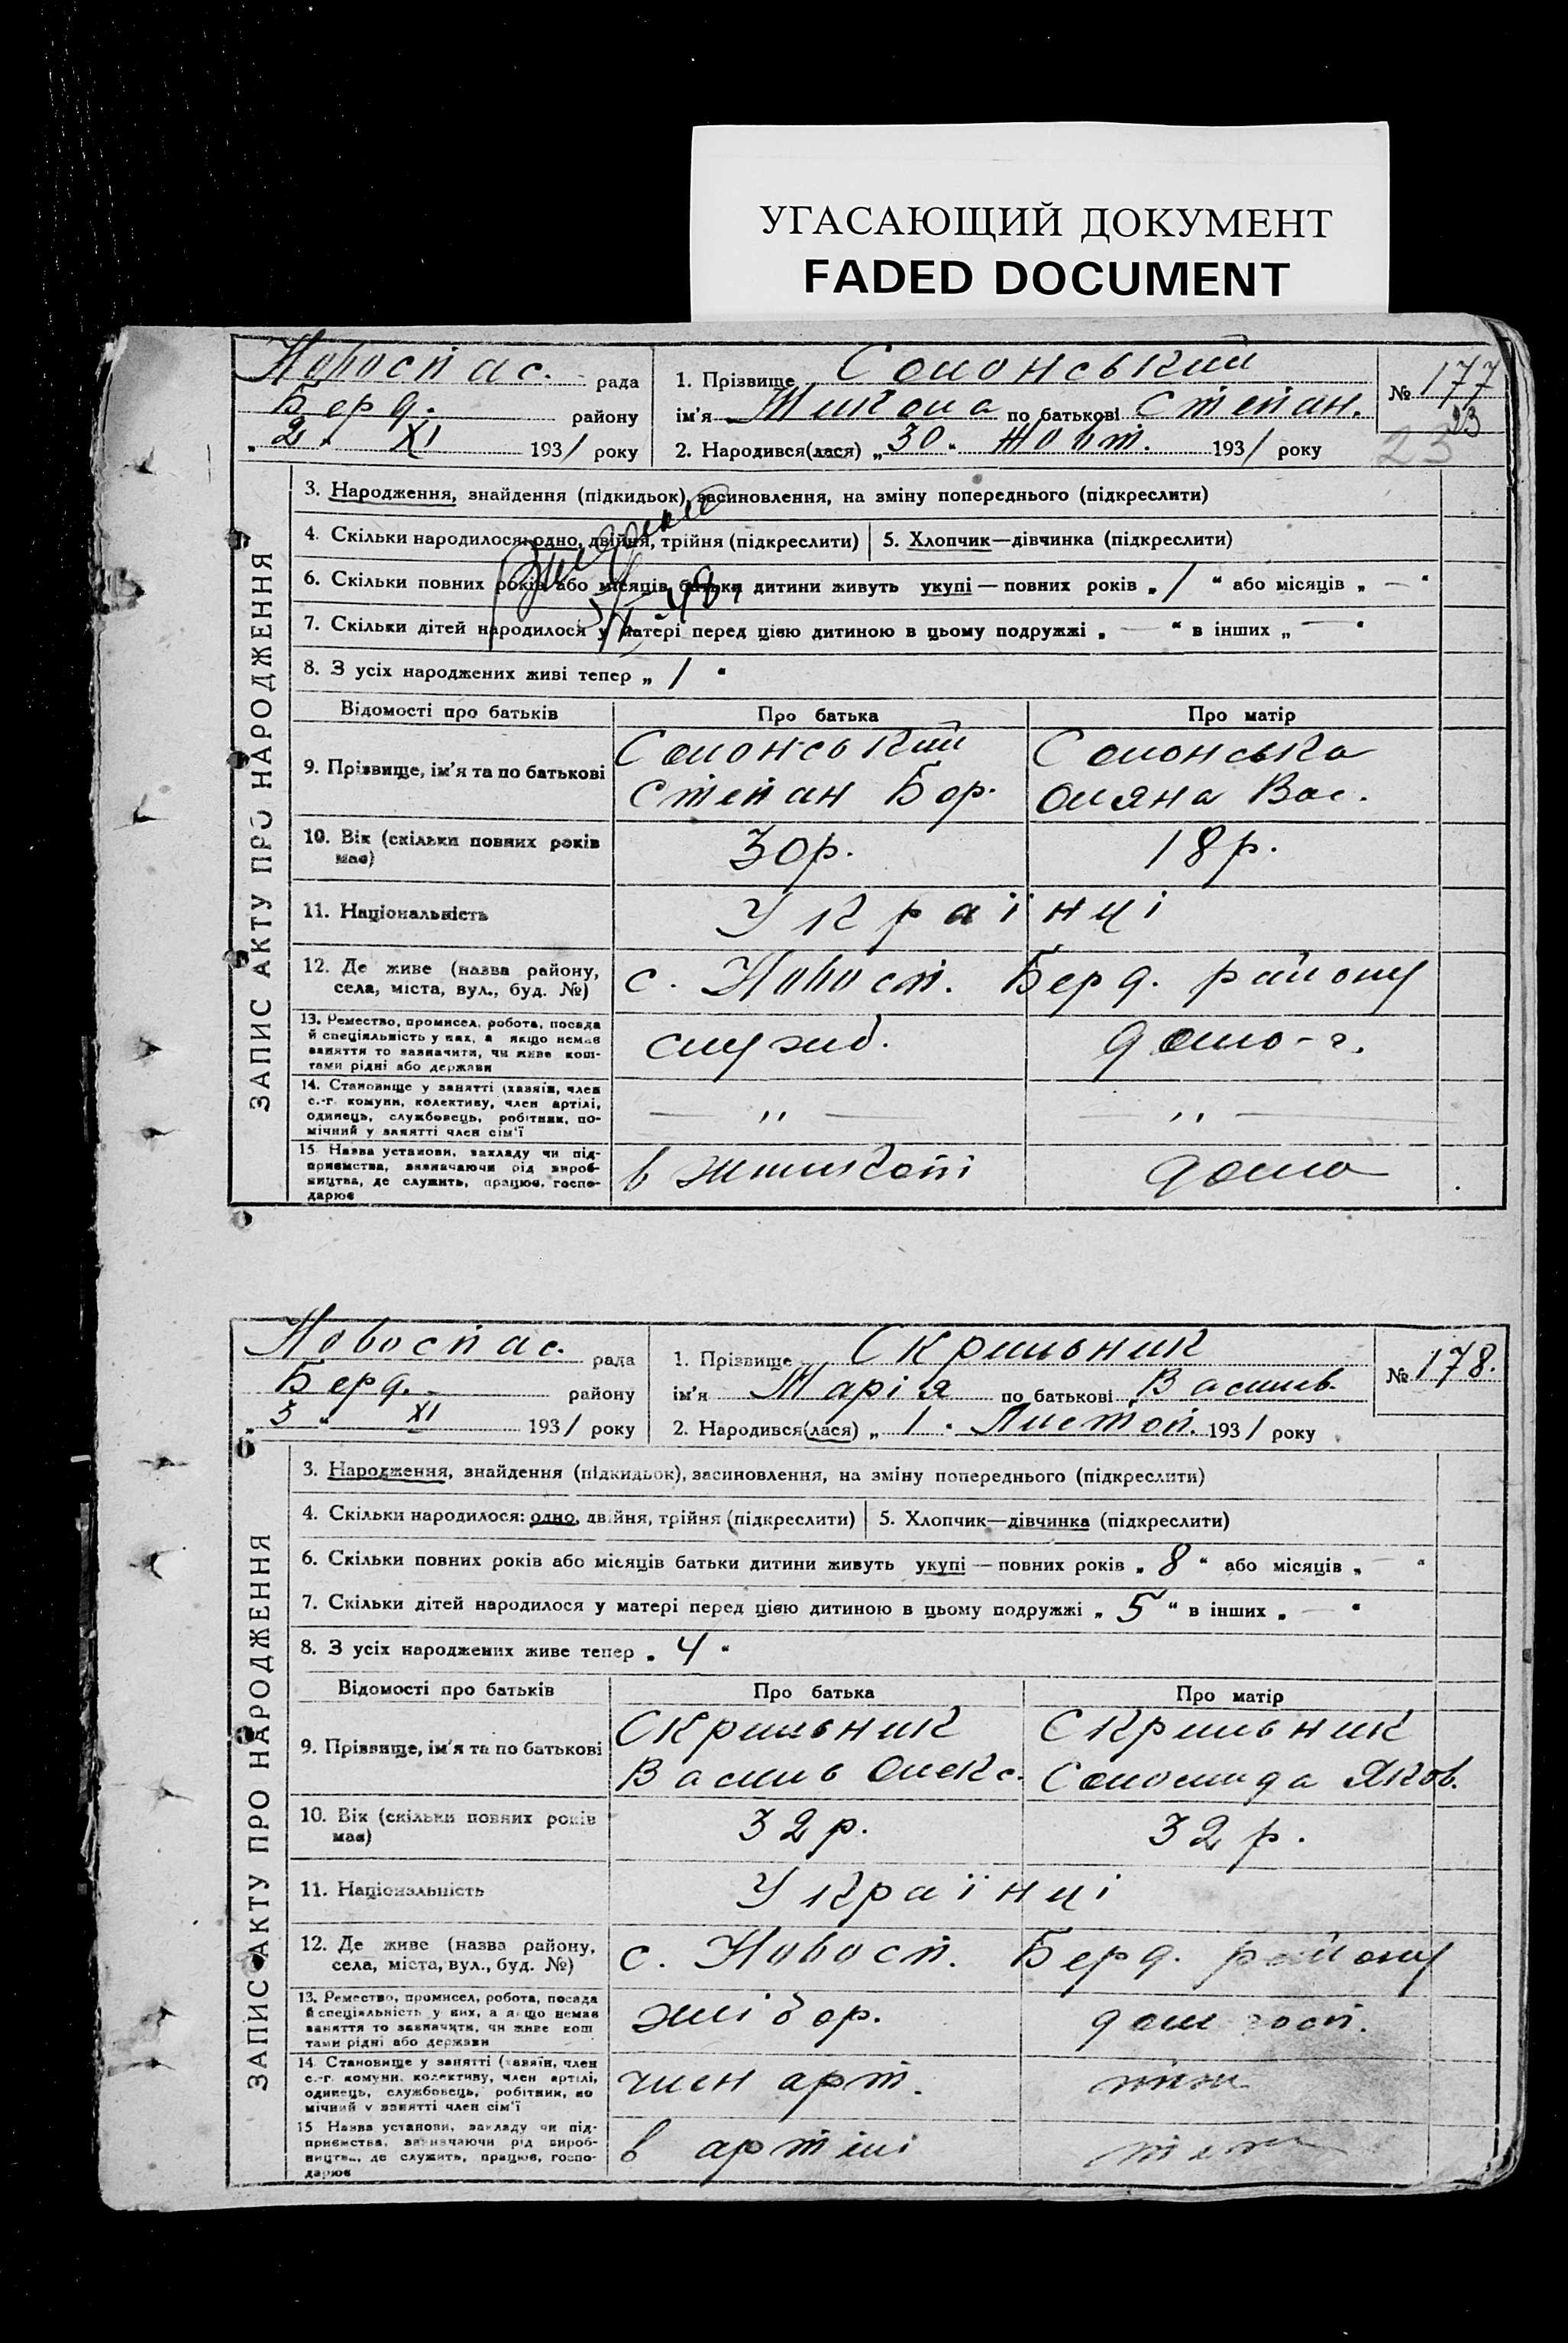 УГАСАЮЩИЙ ДОКУМЕНТ
FADED DOCUMENT
Новоспас. рада
Берд. району
„ 2 „ XI 1931 року
1. Прізвище Солонський
ім'я Микола по батькові Степан.
2. Народився(лася) „ 30 “ Жовт. 1931 року
№ 177
23
23
ЗАПИС АКТУ ПРО НАРОДЖЕННЯ
3. Народження, знайдення (підкидьок), засиновлення, на зміну попереднього (підкреслити)
4. Скільки народилося: одно, двійня, трійня (підкреслити)
5. Хлопчик—дівчинка (підкреслити)
6. Скільки повних років або місяців батьки дитини живуть укупі — повних років „ 1 “ або місяців „ — “
7. Скільки дітей народилося у матері перед цією дитиною в цьому подружжі „ — “ в інших „ — “
8. З усіх народжених живі тепер „ 1 “
Відомості про батьків
Про батька
Про матір
9. Прізвище, ім'я та по батькові
Солонський
Степан Бор.
Солонська
Оляна Вас.
10. Вік (скільки повних років
має)
30р.
18р.
11. Національність
Українці
12. Де живе (назва району,
села, міста, вул., буд. №)
с. Новосп. Берд. району
13. Ремество, промисел, робота, посада
й спеціяльність у них, а якщо немає
заняття то зазначити, чи живе кош-
тами рідні або держави
служб.
домо-г.
14. Становище у занятті (хазяїн, член
с.-г. комуни, колективу, член артілі,
одинець, службовець, робітник, по-
мічний у занятті член сім'ї
— „ —
„ —
15. Назва установи, закладу чи під-
приємства, зазначаючи рід вироб-
ництва, де служить, працює, госпо-
дарює
в
дома
Новоспас. рада
Берд. району
„ 3 „ XI 1931 року
1. Прізвище Скрильник
ім'я Марія по батькові Василів.
2. Народився(лася) „ 1 “ Листоп. 1931 року
№ 178.
ЗАПИС АКТУ ПРО НАРОДЖЕННЯ
3. Народження, знайдення (підкидьок), засиновлення, на зміну попереднього (підкреслити)
4. Скільки народилося: одно, двійня, трійня (підкреслити)
5. Хлопчик—дівчинка (підкреслити)
6. Скільки повних років або місяців батьки дитини живуть укупі — повних років „ 8 “ або місяців „ — “
7. Скільки дітей народилося у матері перед цією дитиною в цьому подружжі „ 5 “ в інших „ — “
8. З усіх народжених живе тепер „ 4 “
Відомості про батьків
Про батька
Про матір
9. Прізвище, ім'я та по батькові
Скрильник
Василь Олекс.
Скрильник
Соломида Яков.
10. Вік (скільки повних років
має)
32 р.
32 р.
11. Національність
Українці
12. Де живе (назва району,
села, міста, вул., буд. №)
с. Новосп. Берд. району
13. Ремество, промисел, робота, посада
й спеціяльність у них, а якщо немає
заняття то зазначити, чи живе кош
тами рідні або держави
хлібор.
дом госп.
14. Становище у занятті (хазяїн, член
с.-г. комуни, колективу, член артілі,
одинець, службовець, робітник, по
мічний у занятті член сім'ї
член арт.
15 Назва установи, закладу чи під-
приємства, зазначаючи рід вироб-
ництва, де служить, працює, госпо-
дарює
в артілі